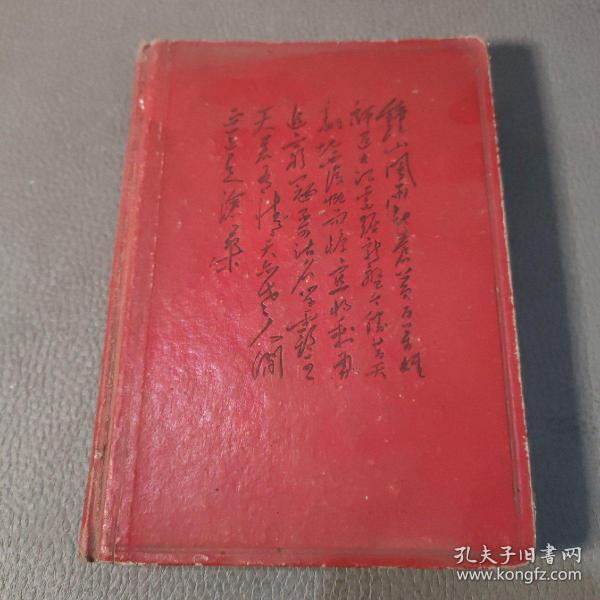 鐘山風雨起蒼黃百萬雄
師過大江虎踞龍盤今勝昔天
翻地覆慨而慷宜將剩勇
追窮寇不可沽名學霸王
天若有情天亦老人間
正道是滄桑
孔夫子旧书网
www.kongfz.com